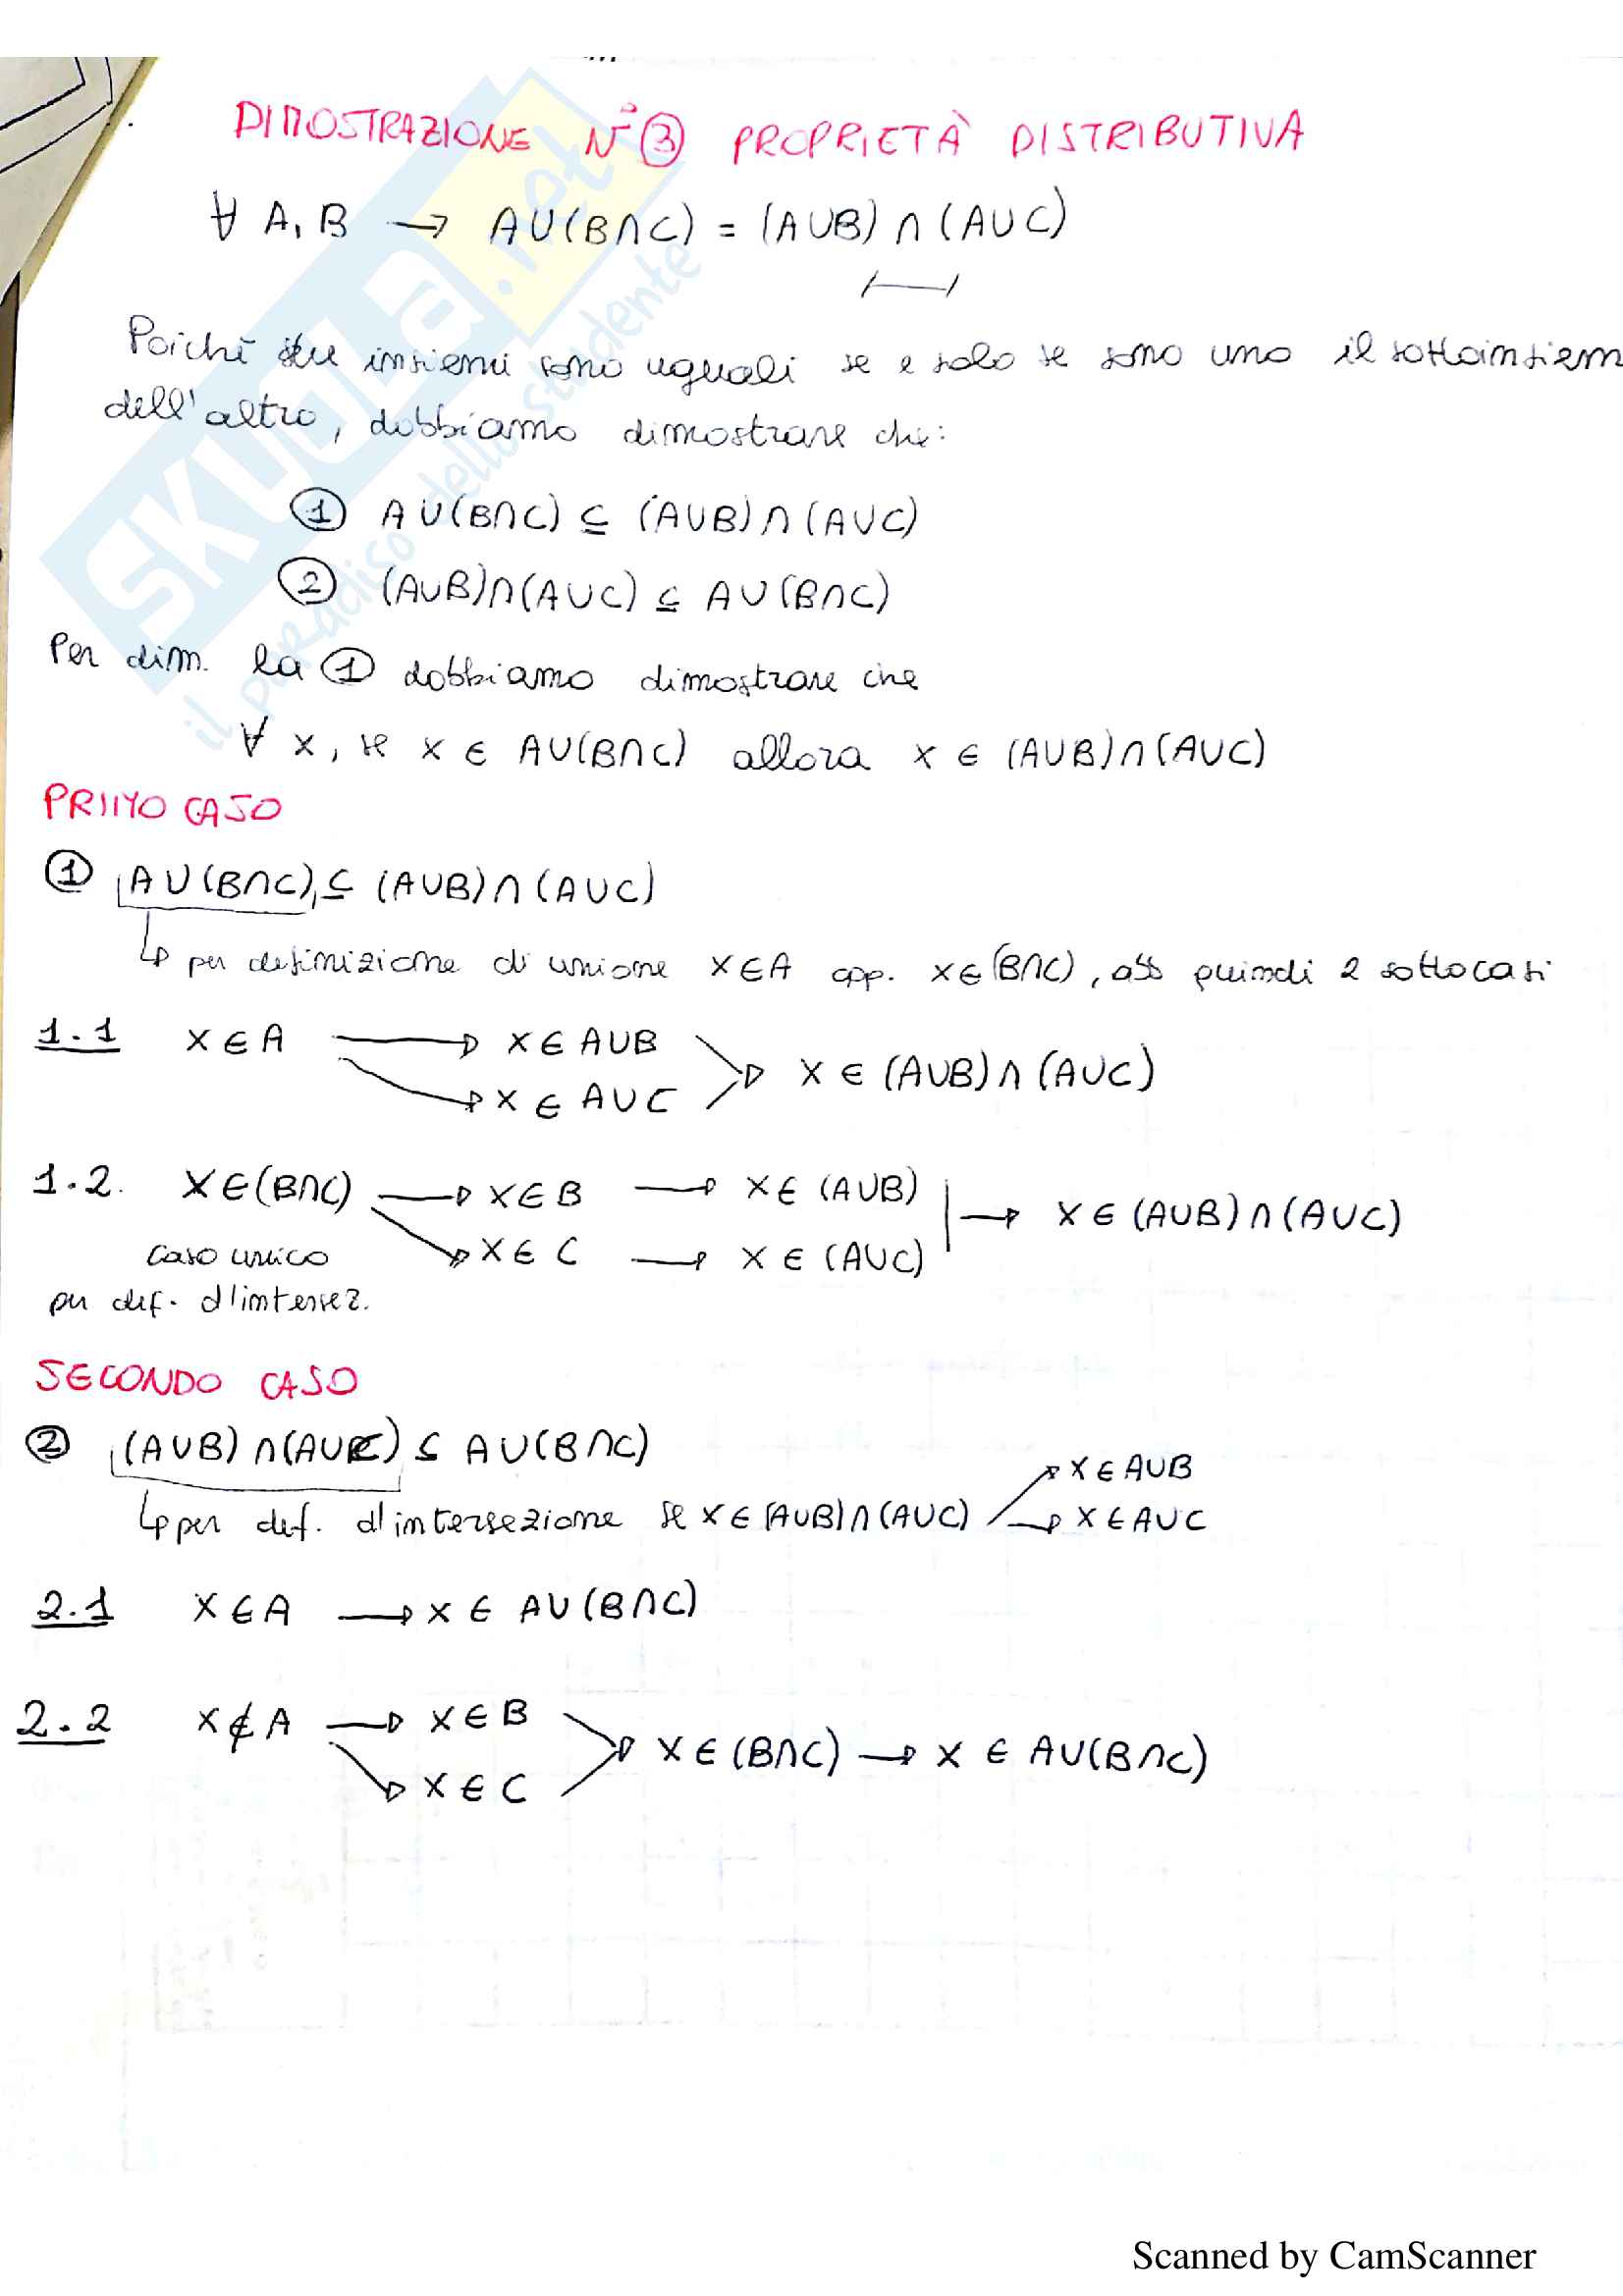 DIMOSTRAZIONE N° 3 PROPRIETÀ DISTRIBUTIVA
∀ A, B → A∪(B∩C) = (A∪B) ∩ (A∪C)
Poichè due insiemi sono uguali se e solo se sono uno il sottoinsiem
dell'altro, dobbiamo dimostrare che:
① A∪(B∩C) ⊆ (A∪B)∩(A∪C)
② (A∪B)∩(A∪C) ⊆ A∪(B∩C)
Per dim. la ① dobbiamo dimostrare che
∀ x, se x ∈ A∪(B∩C) allora x ∈ (A∪B)∩(A∪C)
PRIMO CASO
① A∪(B∩C) ⊆ (A∪B)∩(A∪C)
↳ per definizione di unione x∈A opp. x∈(B∩C), quindi 2 sottocasi
1.1 x∈A → x∈A∪B
→ x∈A∪C → x∈(A∪B)∩(A∪C)
1.2. x∈(B∩C) → x∈B → x∈(A∪B)
→ x∈C → x∈(A∪C) → x∈(A∪B)∩(A∪C)
caso unico
per def. d'intersez.
SECONDO CASO
② (A∪B)∩(A∪C) ⊆ A∪(B∩C)
↳ per def. d'intersezione se x∈(A∪B)∩(A∪C) → x∈A∪B
→ x∈A∪C
2.1 x∈A → x∈A∪(B∩C)
2.2 x∉A → x∈B
→ x∈C → x∈(B∩C) → x∈A∪(B∩C)
SKUOLA.net
il paradiso dello studente
Scanned by CamScanner